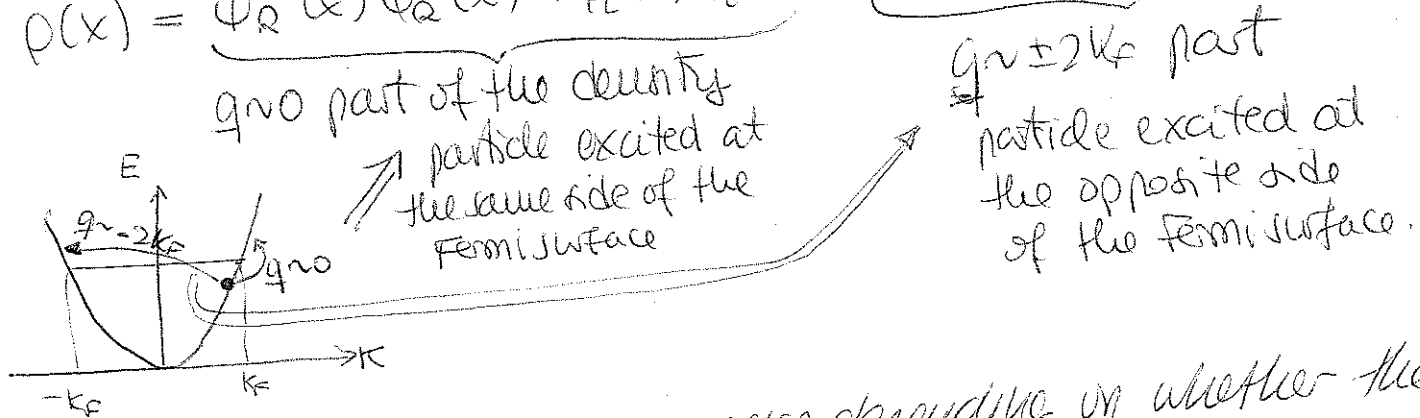 ρ(x) = ψ_R^†(x) ψ_R(x)
q~0 part of the density
particle excited at
the same side of the
Fermi surface
q~±2k_F part
particle excited at
the opposite side
of the Fermi surface.
E
q~-2k_F
q~0
K
-k_F
k_F
depending on whether the